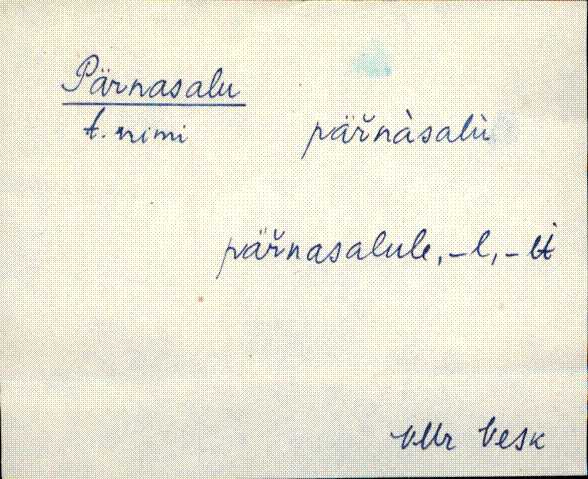 Pärnasalu
t. nimi
päřnàsalù
päřnasalule, -l, -lt
VMr Vesk